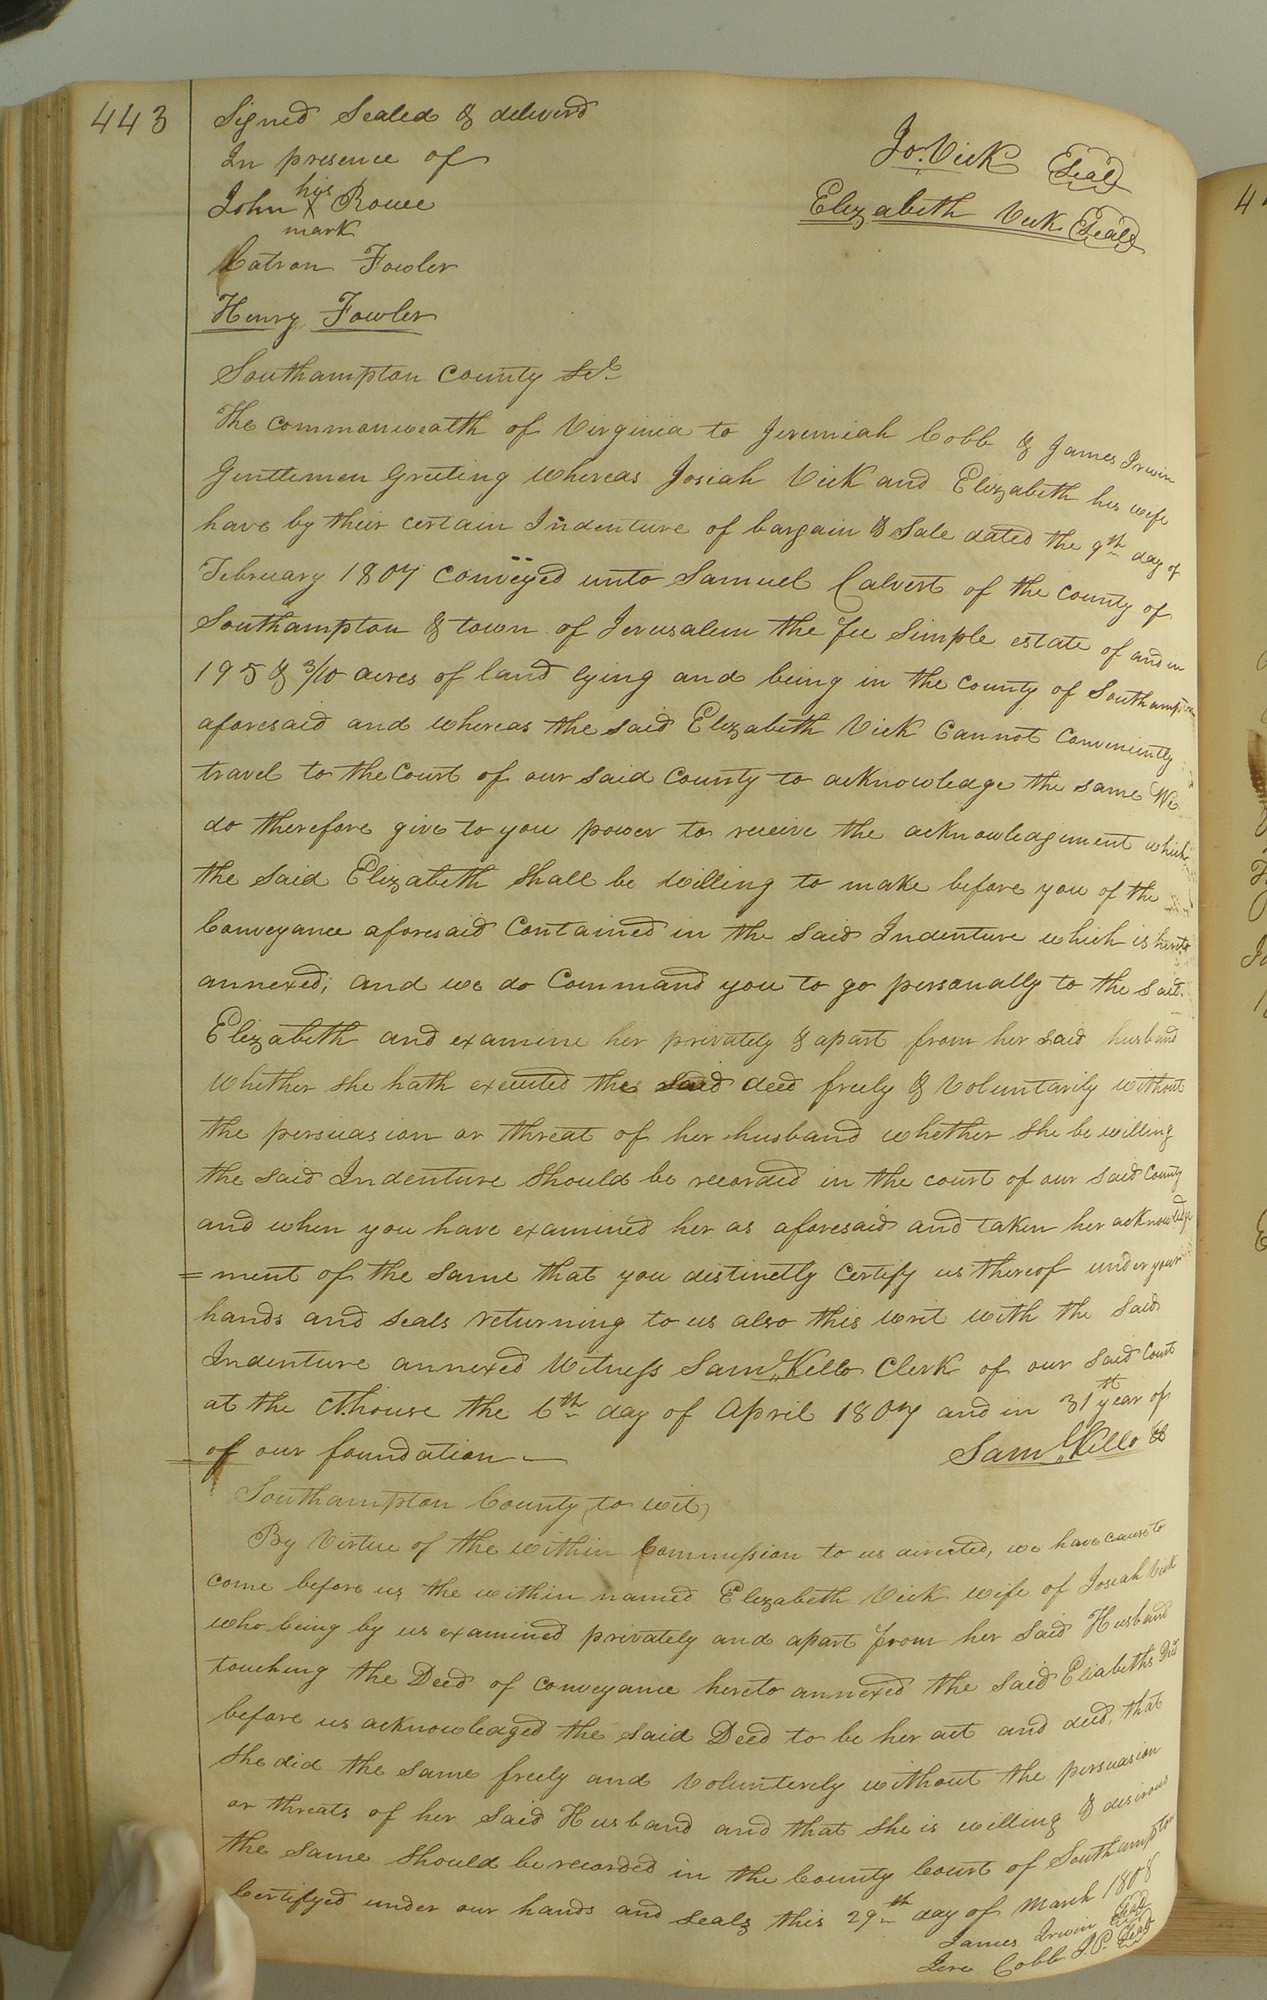 443
Signed Sealed & deliverd
In presence of
Jo. Vick (Seal)
his
John X Rowe
mark
Elizabeth Vick (Seal)
Catron Fowler
Henry Fowler
Southampton County Sct.
The commonwealth of Virginia to Jeremiah Cobb & James Irwin
Gentlemen Greeting whereas Josiah Vick and Elizabeth his wife
have by their certain Indenture of bargain & Sale dated the 9th day of
February 1807 conveyed unto Samuel Calvert of the county of
Southampton & town of Jerusalem the fee Simple estate of and in
195 & 3/10 acres of land lying and being in the county of Southampton
aforesaid and whereas the said Elizabeth Vick Cannot Conveniently
travel to the Court of our said County to acknowledge the same We
do therefore give to you power to receive the acknowledgment which
the said Elizabeth Shall be Willing to make before you of the
Conveyance aforesaid Contained in the Said Indenture which is hereto
annexed; and we do Command you to go personally to the said
Elizabeth and examine her privately & apart from her said husband
Whether she hath executed the said deed freely & Voluntarily without
the persuasion or threat of her husband whether She be willing
the said Indenture Should be recorded in the court of our said County
and when you have examined her as aforesaid and taken her acknowledge
=ment of the same that you distinctly Certify us thereof under your
hands and seals returning to us also this writ with the Said
Indenture annexed Witness Saml. Kello Clerk of our said Court
at the Cthouse the 6th day of April 1807 and in 31th year of
of our foundation —
Saml. Kello Cl
Southampton County, to wit,
By Virtue of the within Commission to us directed, we have cause to
come before us the within named Elizabeth Vick wife of Josiah Vick
who being by us examined privately and apart from her Said Husband
touching the Deed of conveyance hereto annexed the Said Eliabeths Did
before us acknowledged the said Deed to be her act and deed, that
She did the same freely and Volunterily without the persuasion
or threats of her Said Husband and that She is willing & desirous
the same Should be recorded in the County Court of Southampton
Certifyed under our hands and seals this 29th day of March 1808
James Irwin (Seal)
Jere Cobb J.P. (Seal)